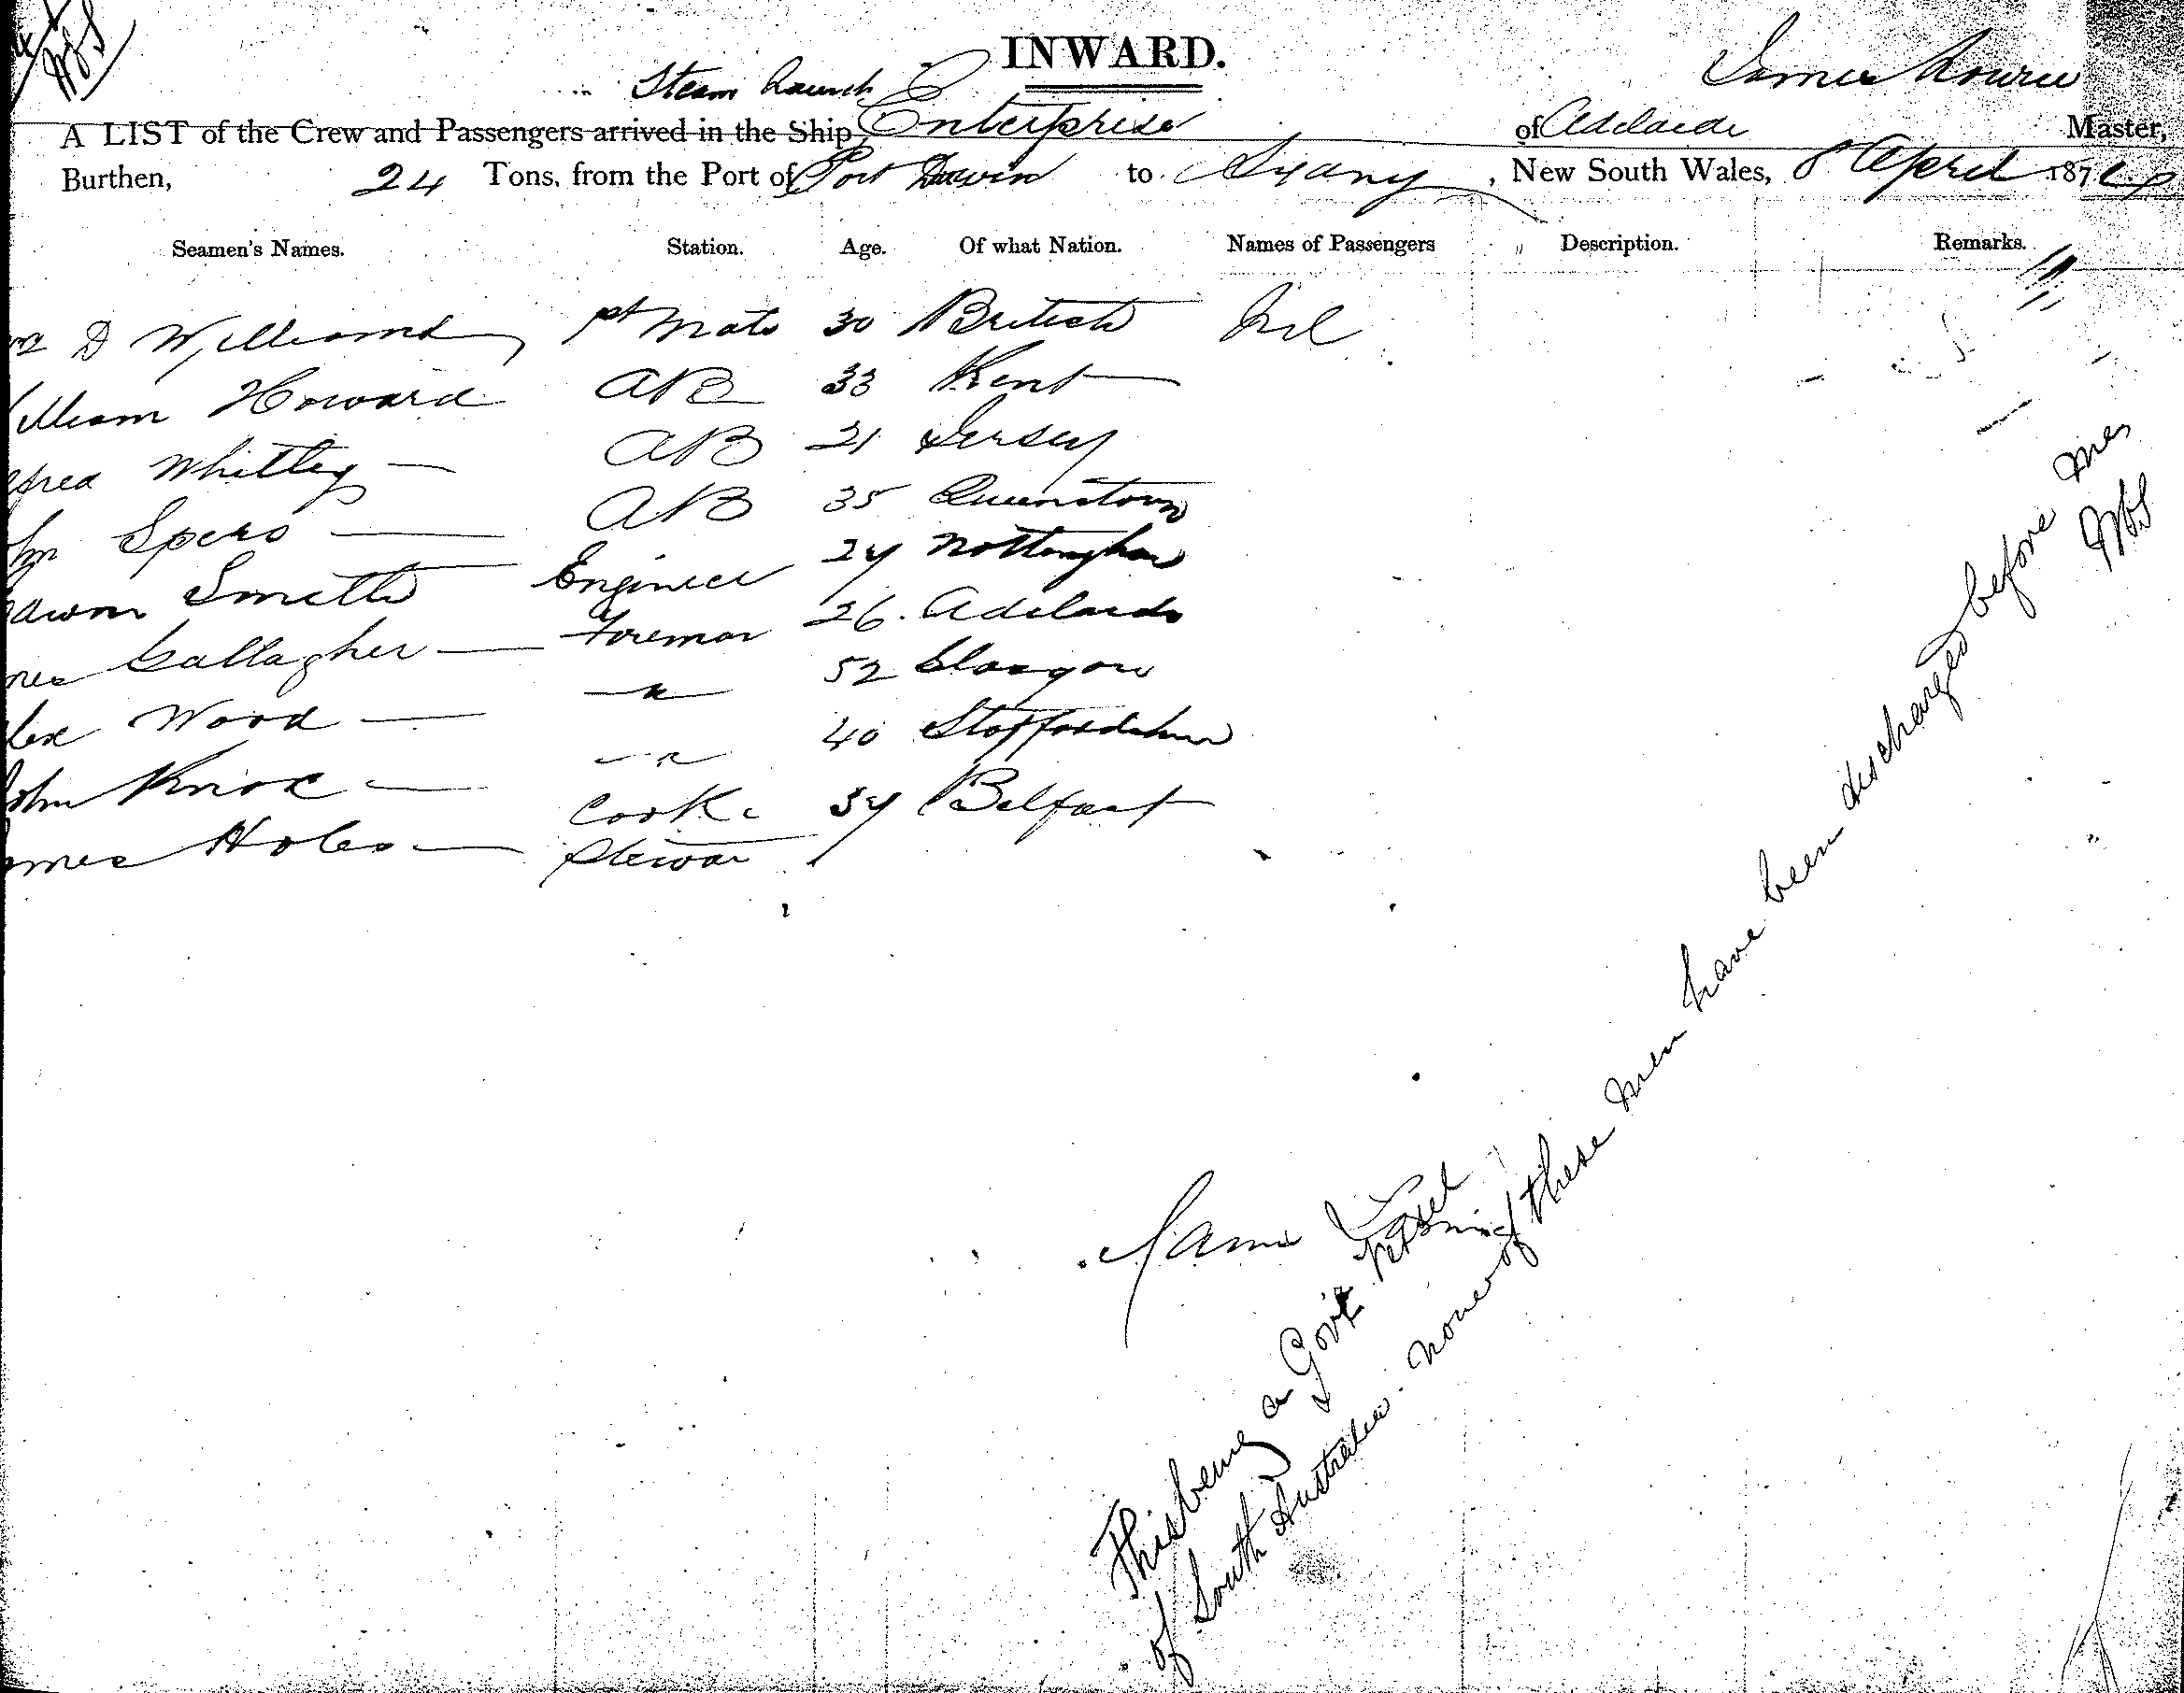 INWARD.
Steam Launch James Lowrie
A LIST of the Crew and Passengers arrived in the Ship Enterprise of Adelaide Master,
Burthen, 24 Tons, from the Port of Port Darwin to Sydney, New South Wales, 8 April 187
Seamen's Names. Station. Age. Of what Nation. Names of Passengers Description. Remarks.
D Williams 1st Mate 30 British Nil
illiam Howard AB 33 Kent
lfred Whittey AB 21 Jersey
ohn Spero AB 35 Queenstown
dwin Smith Engineer 24 Nottingham
mes Gallagher Foreman 26. Adelaide
lex Wood 52 Glasgow
John Knox 40 Staffordshire
ames Holes Cook & 34 Belfast
Stewar
James
This being a Govt Vessel
of South Australia. None of these men have been discharged before me